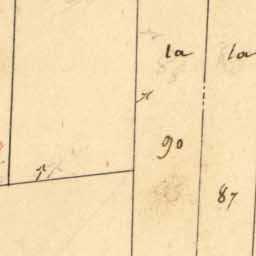 la la
90
87